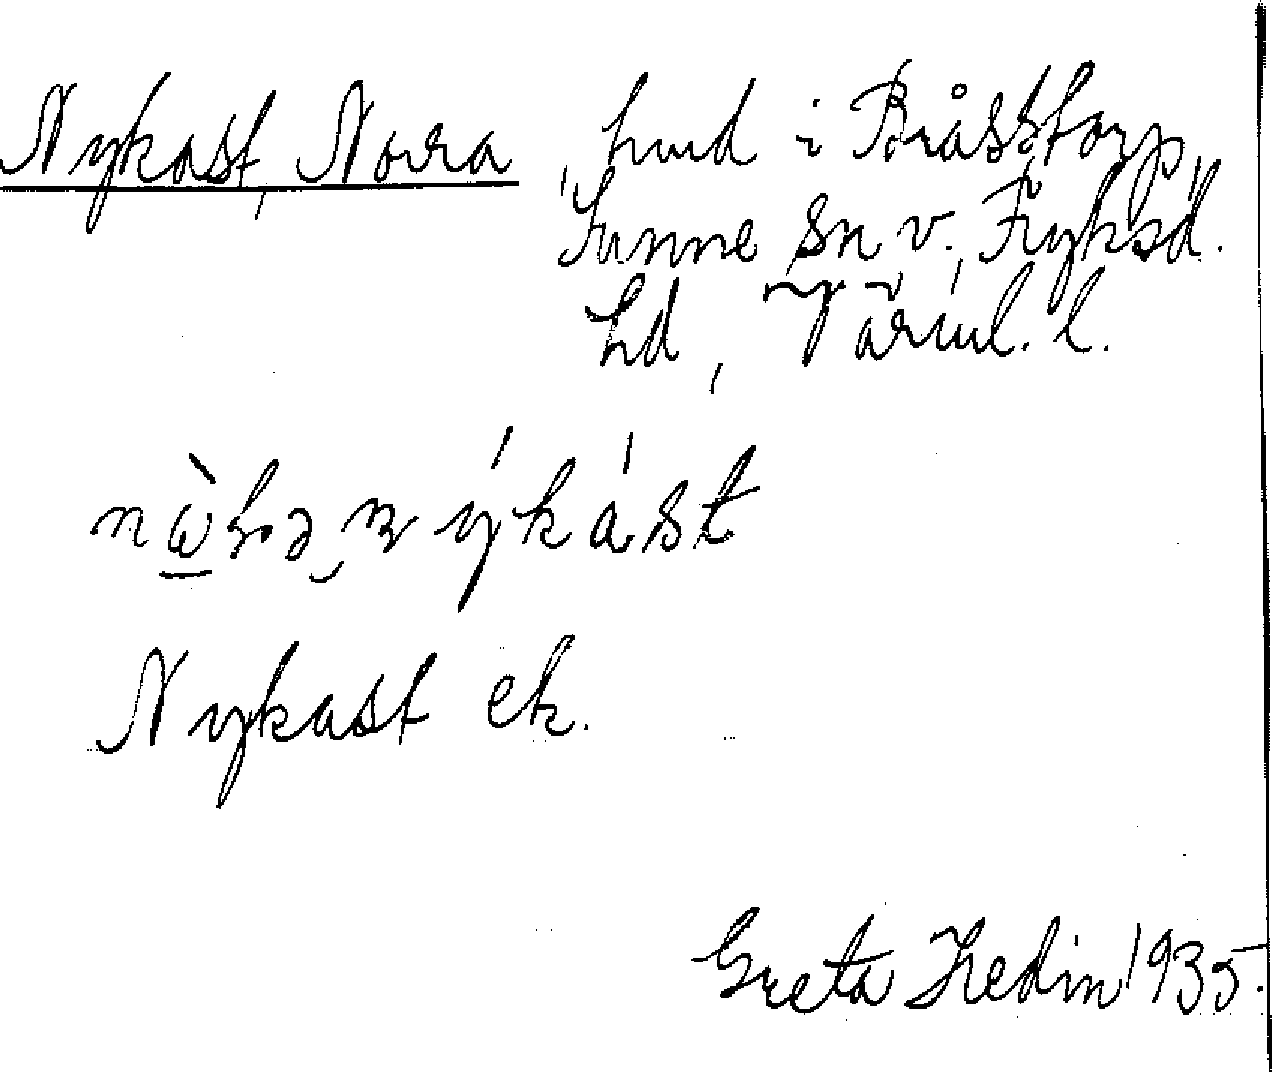 Nykast, Norra, hmd i Bråsstorp,
Sunne sn v. Fryksd.
hd, Värml. l.
nykást
Nykast ek.
Greta Hedin 1935.